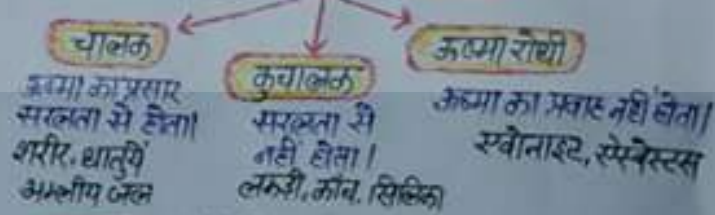 चालक
ऊष्मा का प्रसार
सरलता से होता।
शरीर, धातुयें
अम्लीय जल
कुचालक
सरलता से
नहीं होता।
लकड़ी, काँच, सिलिका
ऊष्मा रोधी
ऊष्मा का प्रवाह नहीं होता।
एबोनाइट, ऐस्बेस्टस